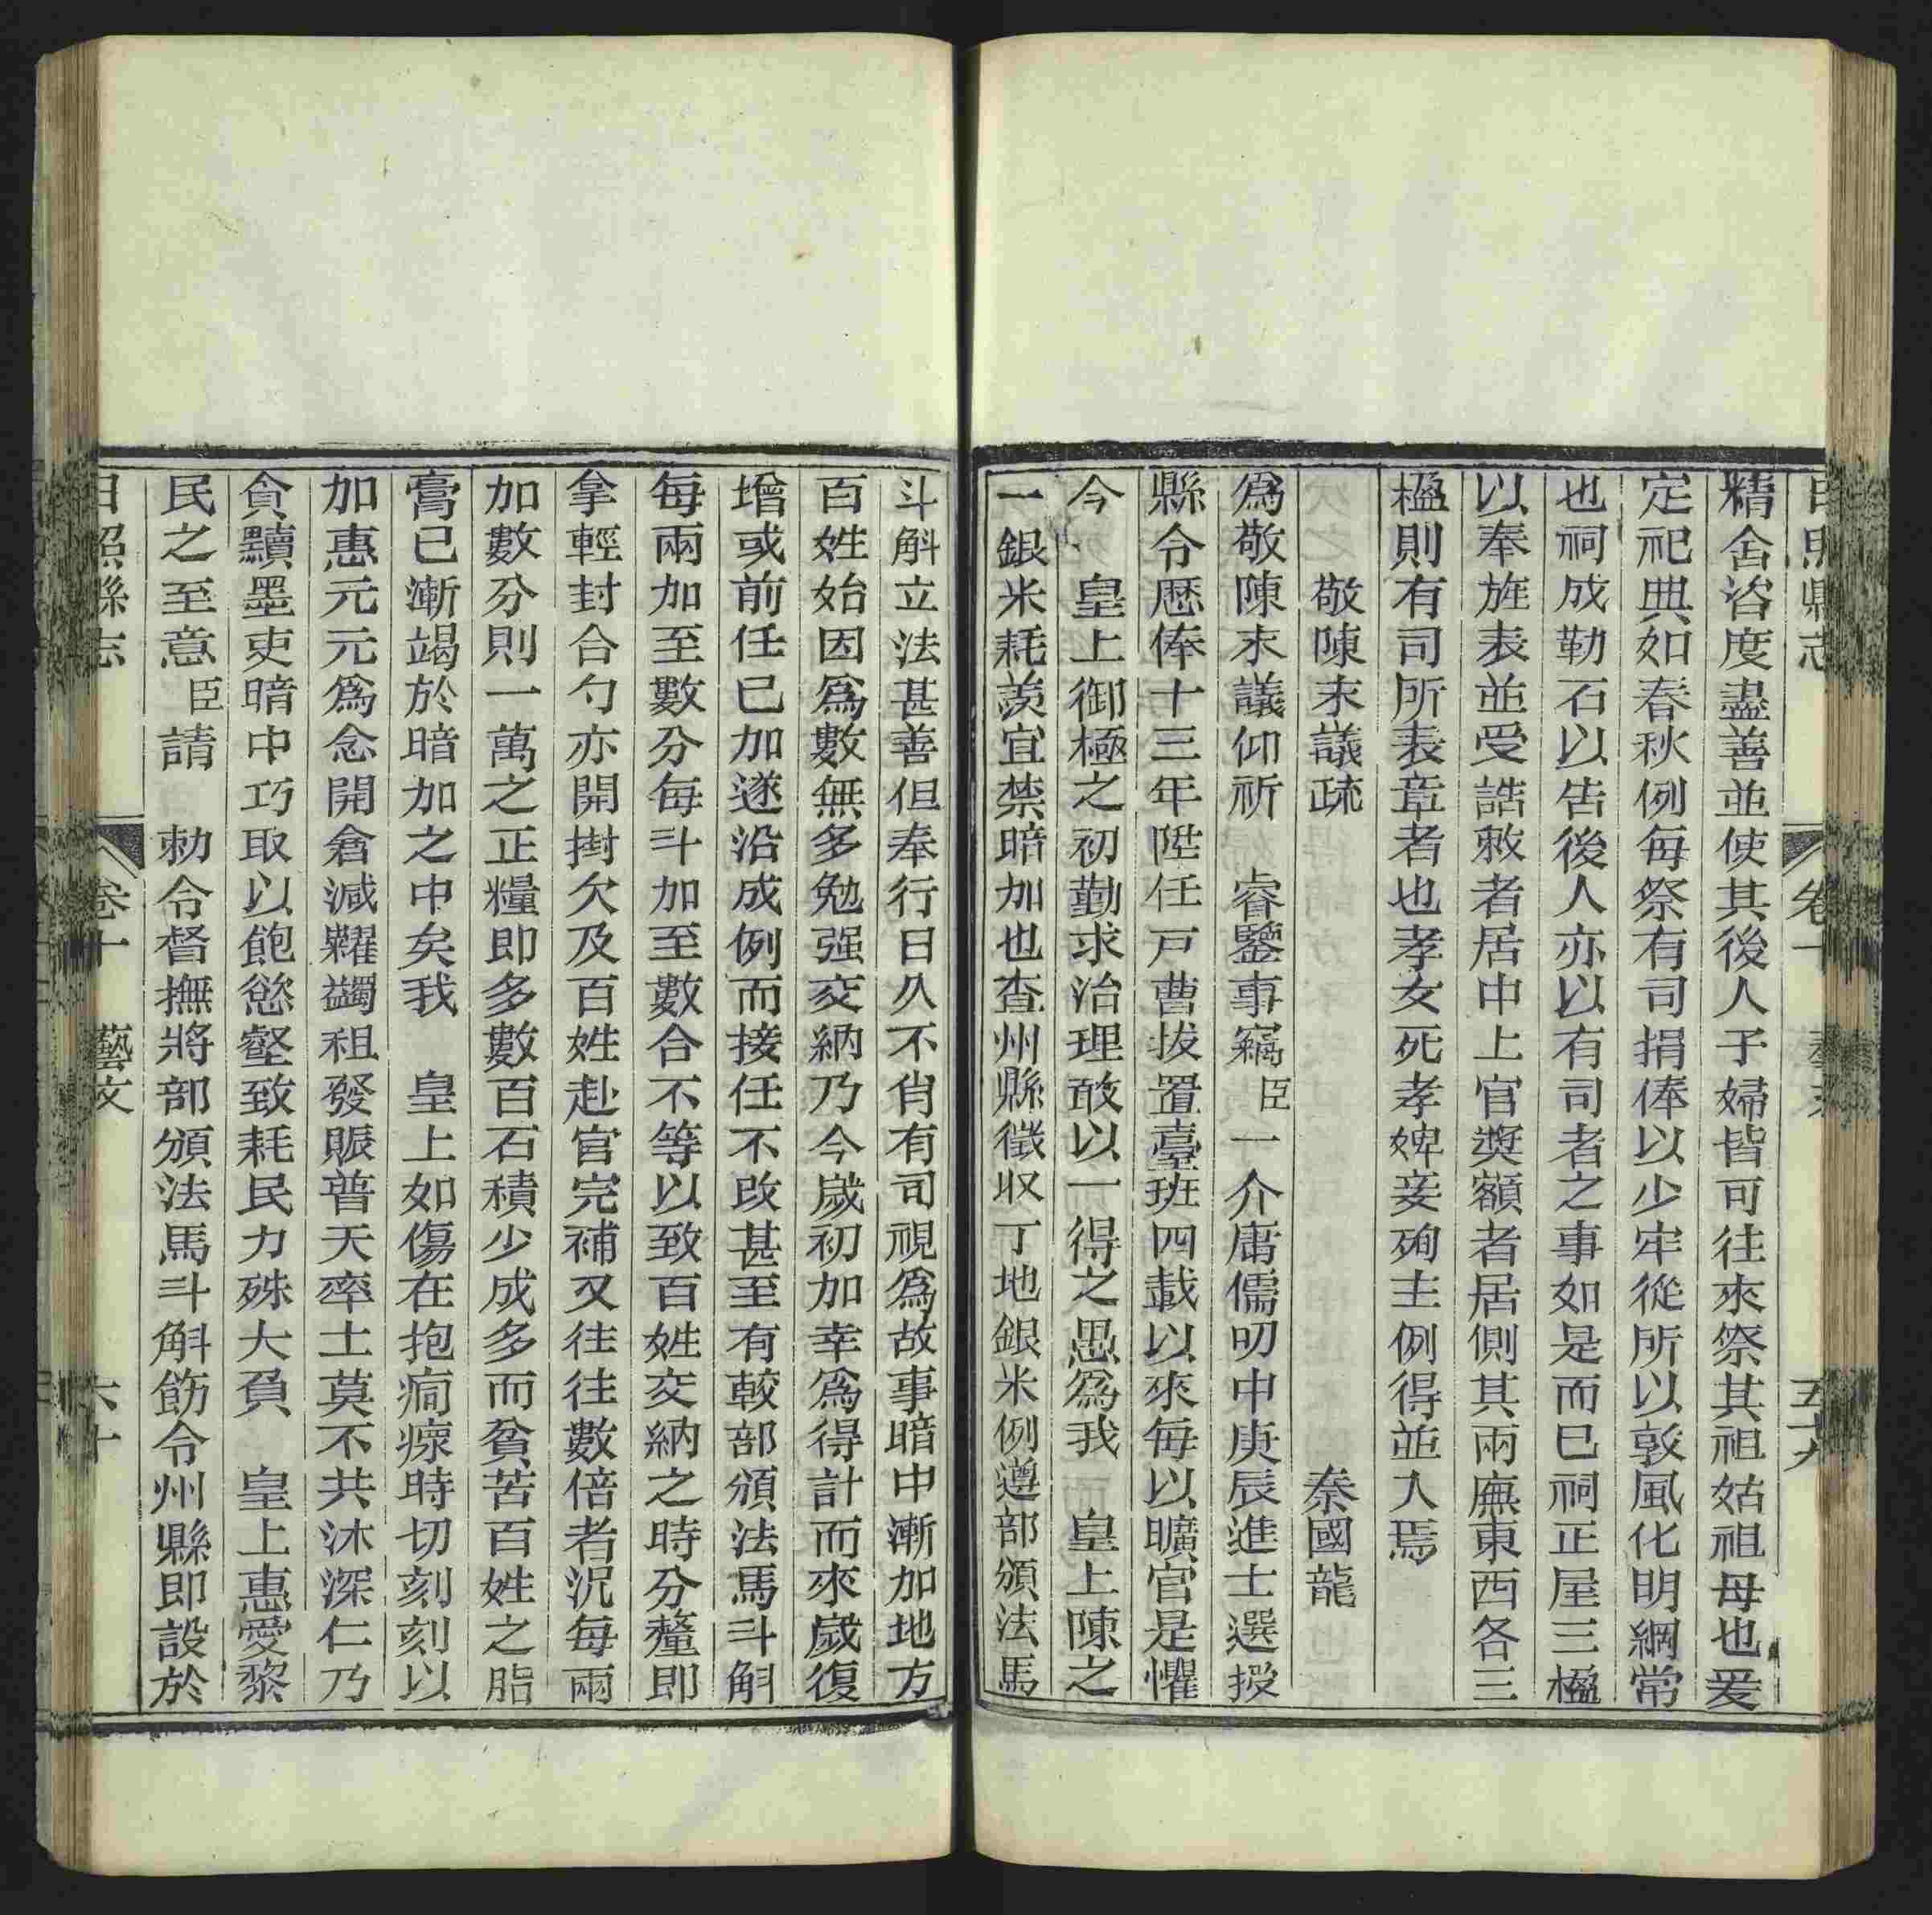 日照縣志 卷十 藝文 五十九
精舍洽度盡善並使其後人子婦皆可往來祭其祖姑祖母也爰
定祀典如春秋例每祭有司捐俸以少牢從所以敦風化明綱常
也祠成勒石以告後人亦以有司者之事如是而巳祠正屋三楹
以奉旌表並受誥敕者居中上官奬額者居側其兩廡東西各三
楹則有司所表章者也孝女死孝婢妾殉主例得並入焉
敬陳末議疏 秦國龍
爲敬陳末議仰祈 睿鑒事竊臣一介庸儒叨中庚辰進士選授
縣令歷俸十三年陞任戸曹拔置臺班四載以來每以曠官是懼
今 皇上御極之初勤求治理敢以一得之愚爲我 皇上陳之
一銀米耗羨宜禁暗加也查州縣徵收丁地銀米例遵部頒法馬
斗斛立法甚善但奉行日久不肖有司視爲故事暗中漸加地方
百姓始因爲數無多勉强交納乃今歲初加幸爲得計而來歲復
增或前任已加遂沿成例而接任不改甚至有較部頒法馬斗斛
每兩加至數分每斗加至數合不等以致百姓交納之時分釐即
拿輕封合勺亦開掛欠及百姓赴官完補又往往數倍者況每兩
加數分則一萬之正糧即多數百石積少成多而貧苦百姓之脂
膏已漸竭於暗加之中矣我 皇上如傷在抱痌瘝時切刻刻以
加惠元元爲念開倉減糶蠲租發賑普天率土莫不共沐深仁乃
貪黷墨吏暗中巧取以飽慾壑致耗民力殊大負 皇上惠愛黎
民之至意臣請 勅令督撫將部頒法馬斗斛飭令州縣即設於
日照縣志 卷十 藝文 六十